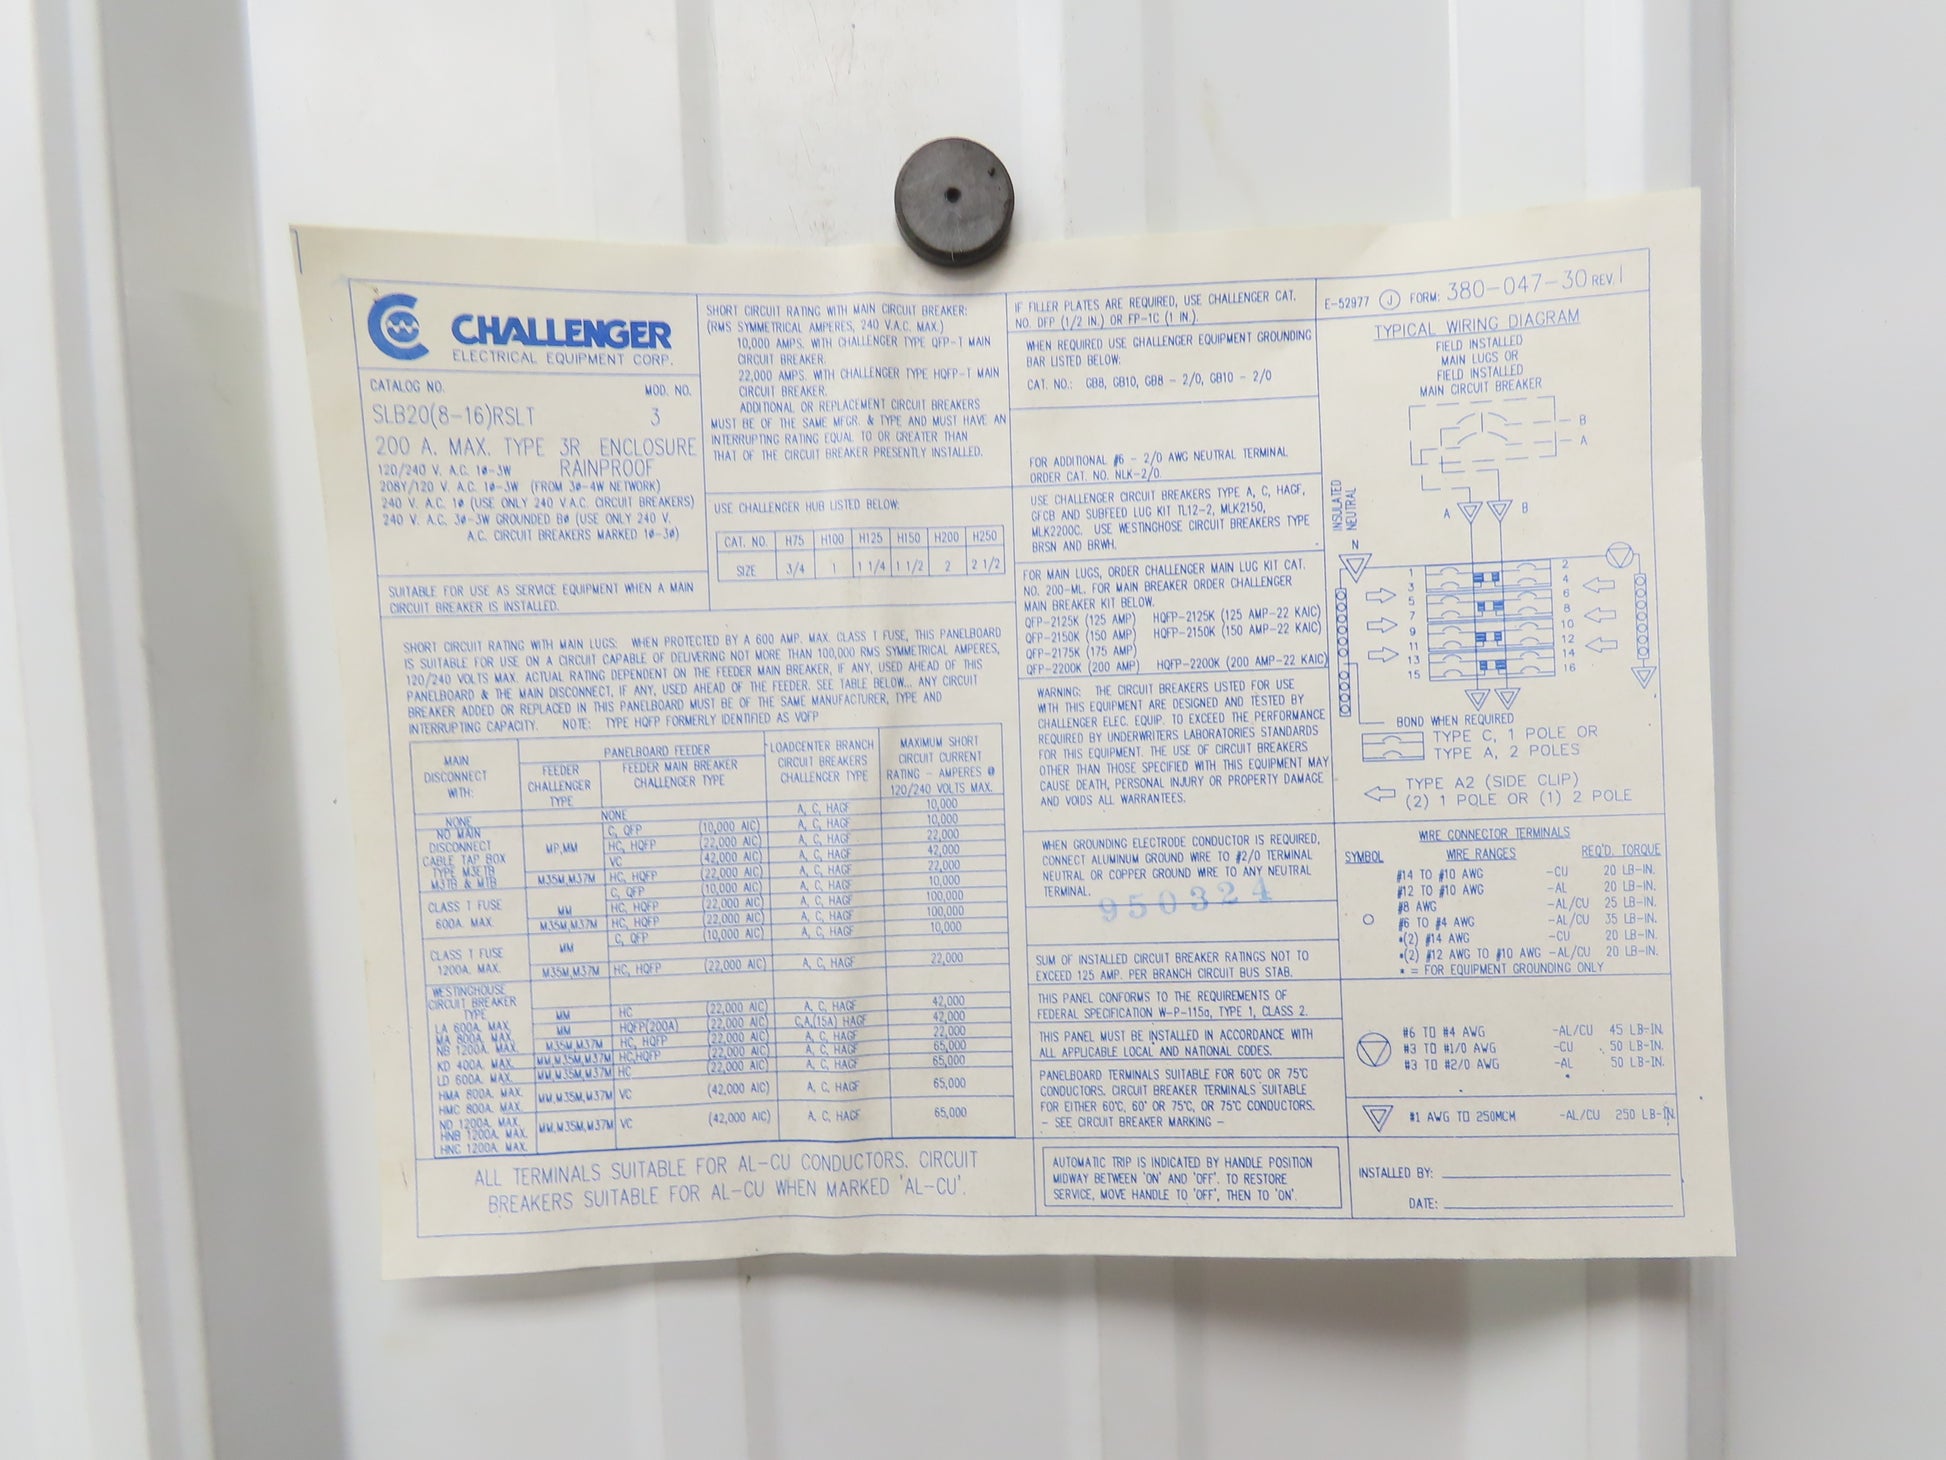 CHALLENGER
ELECTRICAL EQUIPMENT CORP.
CATALOG NO. MOD. NO.
SLB20(8-16)RSLT 3
200 A. MAX. TYPE 3R ENCLOSURE
120/240 V. A.C. 1ø-3W RAINPROOF
208Y/120 V. A.C. 1ø-3W (FROM 3ø-4W NETWORK)
240 V. A.C. 1ø (USE ONLY 240 V.A.C. CIRCUIT BREAKERS)
240 V. A.C. 3ø-3W GROUNDED Bø (USE ONLY 240 V.
A.C. CIRCUIT BREAKERS MARKED 1ø-3ø)
SUITABLE FOR USE AS SERVICE EQUIPMENT WHEN A MAIN
CIRCUIT BREAKER IS INSTALLED.
SHORT CIRCUIT RATING WITH MAIN CIRCUIT BREAKER:
(RMS SYMMETRICAL AMPERES, 240 V.A.C. MAX.)
10,000 AMPS. WITH CHALLENGER TYPE QFP-T MAIN
CIRCUIT BREAKER.
22,000 AMPS. WITH CHALLENGER TYPE HQFP-T MAIN
CIRCUIT BREAKER.
ADDITIONAL OR REPLACEMENT CIRCUIT BREAKERS
MUST BE OF THE SAME MFGR. & TYPE AND MUST HAVE AN
INTERRUPTING RATING EQUAL TO OR GREATER THAN
THAT OF THE CIRCUIT BREAKER PRESENTLY INSTALLED.
USE CHALLENGER HUB LISTED BELOW:
CAT. NO. H75 H100 H125 H150 H200 H250
SIZE 3/4 1 1 1/4 1 1/2 2 2 1/2
SHORT CIRCUIT RATING WITH MAIN LUGS: WHEN PROTECTED BY A 600 AMP. MAX. CLASS T FUSE, THIS PANELBOARD
IS SUITABLE FOR USE ON A CIRCUIT CAPABLE OF DELIVERING NOT MORE THAN 100,000 RMS SYMMETRICAL AMPERES,
120/240 VOLTS MAX. ACTUAL RATING DEPENDENT ON THE FEEDER MAIN BREAKER, IF ANY, USED AHEAD OF THIS
PANELBOARD & THE MAIN DISCONNECT, IF ANY, USED AHEAD OF THE FEEDER. SEE TABLE BELOW... ANY CIRCUIT
BREAKER ADDED OR REPLACED IN THIS PANELBOARD MUST BE OF THE SAME MANUFACTURER, TYPE AND
INTERRUPTING CAPACITY. NOTE: TYPE HQFP FORMERLY IDENTIFIED AS VQFP
MAIN
DISCONNECT
WITH:
PANELBOARD FEEDER
FEEDER
CHALLENGER
TYPE
FEEDER MAIN BREAKER
CHALLENGER TYPE
LOADCENTER BRANCH
CIRCUIT BREAKERS
CHALLENGER TYPE
MAXIMUM SHORT
CIRCUIT CURRENT
RATING - AMPERES @
120/240 VOLTS MAX.
NONE
NO MAIN
DISCONNECT
CABLE TAP BOX
TYPE M3ETB
M3TB & MTB
NONE A, C, HAGF 10,000
MP,MM
C, QFP (10,000 AIC) A, C, HAGF 10,000
HC, HQFP (22,000 AIC) A, C, HAGF 22,000
VC (42,000 AIC) A, C, HAGF 42,000
M35M,M37M HC, HQFP (22,000 AIC) A, C, HAGF 22,000
CLASS T FUSE
600A. MAX.
C, QFP (10,000 AIC) A, C, HAGF 10,000
MM HC, HQFP (22,000 AIC) A, C, HAGF 100,000
M35M,M37M HC, HQFP (22,000 AIC) A, C, HAGF 100,000
CLASS T FUSE
1200A. MAX.
MM C, QFP (10,000 AIC) A, C, HAGF 10,000
M35M,M37M HC, HQFP (22,000 AIC) A, C, HAGF 22,000
WESTINGHOUSE
CIRCUIT BREAKER
TYPE
LA 600A. MAX.
MA 800A. MAX.
NB 1200A. MAX.
KD 400A. MAX.
LD 600A. MAX.
HMA 800A. MAX.
HMC 800A. MAX.
ND 1200A. MAX.
HNB 1200A. MAX.
HNC 1200A. MAX.
MM HC (22,000 AIC) A, C, HAGF 42,000
MM HQFP(200A) (22,000 AIC) C,A,(15A) HAGF 42,000
M35M,M37M HC, HQFP (22,000 AIC) A, C, HAGF 22,000
MM,M35M,M37M HC,HQFP (22,000 AIC) A, C, HAGF 65,000
MM,M35M,M37M HC (22,000 AIC) A, C, HAGF 65,000
MM,M35M,M37M VC (42,000 AIC) A, C, HAGF 65,000
MM,M35M,M37M VC (42,000 AIC) A, C, HAGF 65,000
ALL TERMINALS SUITABLE FOR AL-CU CONDUCTORS. CIRCUIT
BREAKERS SUITABLE FOR AL-CU WHEN MARKED 'AL-CU'.
IF FILLER PLATES ARE REQUIRED, USE CHALLENGER CAT.
NO. DFP (1/2 IN.) OR FP-1C (1 IN.)
WHEN REQUIRED USE CHALLENGER EQUIPMENT GROUNDING
BAR LISTED BELOW:
CAT. NO.: GB8, GB10, GB8 - 2/0, GB10 - 2/0
FOR ADDITIONAL #6 - 2/0 AWG NEUTRAL TERMINAL
ORDER CAT. NO. NLK-2/0.
USE CHALLENGER CIRCUIT BREAKERS TYPE A, C, HAGF,
GFCB AND SUBFEED LUG KIT TL12-2, MLK2150,
MLK2200C. USE WESTINGHOSE CIRCUIT BREAKERS TYPE
BRSN AND BRWH.
FOR MAIN LUGS, ORDER CHALLENGER MAIN LUG KIT CAT.
NO. 200-ML. FOR MAIN BREAKER ORDER CHALLENGER
MAIN BREAKER KIT BELOW.
QFP-2125K (125 AMP) HQFP-2125K (125 AMP-22 KAIC)
QFP-2150K (150 AMP) HQFP-2150K (150 AMP-22 KAIC)
QFP-2175K (175 AMP)
QFP-2200K (200 AMP) HQFP-2200K (200 AMP-22 KAIC)
WARNING: THE CIRCUIT BREAKERS LISTED FOR USE
WITH THIS EQUIPMENT ARE DESIGNED AND TESTED BY
CHALLENGER ELEC. EQUIP. TO EXCEED THE PERFORMANCE
REQUIRED BY UNDERWRITERS LABORATORIES STANDARDS
FOR THIS EQUIPMENT. THE USE OF CIRCUIT BREAKERS
OTHER THAN THOSE SPECIFIED WITH THIS EQUIPMENT MAY
CAUSE DEATH, PERSONAL INJURY OR PROPERTY DAMAGE
AND VOIDS ALL WARRANTEES.
WHEN GROUNDING ELECTRODE CONDUCTOR IS REQUIRED,
CONNECT ALUMINUM GROUND WIRE TO #2/0 TERMINAL
NEUTRAL OR COPPER GROUND WIRE TO ANY NEUTRAL
TERMINAL.
950324
SUM OF INSTALLED CIRCUIT BREAKER RATINGS NOT TO
EXCEED 125 AMP. PER BRANCH CIRCUIT BUS STAB.
THIS PANEL CONFORMS TO THE REQUIREMENTS OF
FEDERAL SPECIFICATION W-P-115a, TYPE 1, CLASS 2.
THIS PANEL MUST BE INSTALLED IN ACCORDANCE WITH
ALL APPLICABLE LOCAL AND NATIONAL CODES.
PANELBOARD TERMINALS SUITABLE FOR 60°C OR 75°C
CONDUCTORS. CIRCUIT BREAKER TERMINALS SUITABLE
FOR EITHER 60°C, 60° OR 75°C, OR 75°C CONDUCTORS.
- SEE CIRCUIT BREAKER MARKING -
AUTOMATIC TRIP IS INDICATED BY HANDLE POSITION
MIDWAY BETWEEN 'ON' AND 'OFF'. TO RESTORE
SERVICE, MOVE HANDLE TO 'OFF', THEN TO 'ON'.
E-52977 J FORM: 380-047-30 REV. I
TYPICAL WIRING DIAGRAM
FIELD INSTALLED
MAIN LUGS OR
FIELD INSTALLED
MAIN CIRCUIT BREAKER
B
A
INSULATED
NEUTRAL
A B
N
1 2
3 4
5 6
7 8
9 10
11 12
13 14
15 16
BOND WHEN REQUIRED
TYPE C, 1 POLE OR
TYPE A, 2 POLES
TYPE A2 (SIDE CLIP)
(2) 1 POLE OR (1) 2 POLE
WIRE CONNECTOR TERMINALS
SYMBOL WIRE RANGES REQ'D. TORQUE
#14 TO #10 AWG -CU 20 LB-IN.
#12 TO #10 AWG -AL 20 LB-IN.
#8 AWG -AL/CU 25 LB-IN.
#6 TO #4 AWG -AL/CU 35 LB-IN.
*(2) #14 AWG -CU 20 LB-IN.
*(2) #12 AWG TO #10 AWG -AL/CU 20 LB-IN.
* = FOR EQUIPMENT GROUNDING ONLY
#6 TO #4 AWG -AL/CU 45 LB-IN.
#3 TO #1/0 AWG -CU 50 LB-IN.
#3 TO #2/0 AWG -AL 50 LB-IN.
#1 AWG TO 250MCM -AL/CU 250 LB-IN.
INSTALLED BY:
DATE: